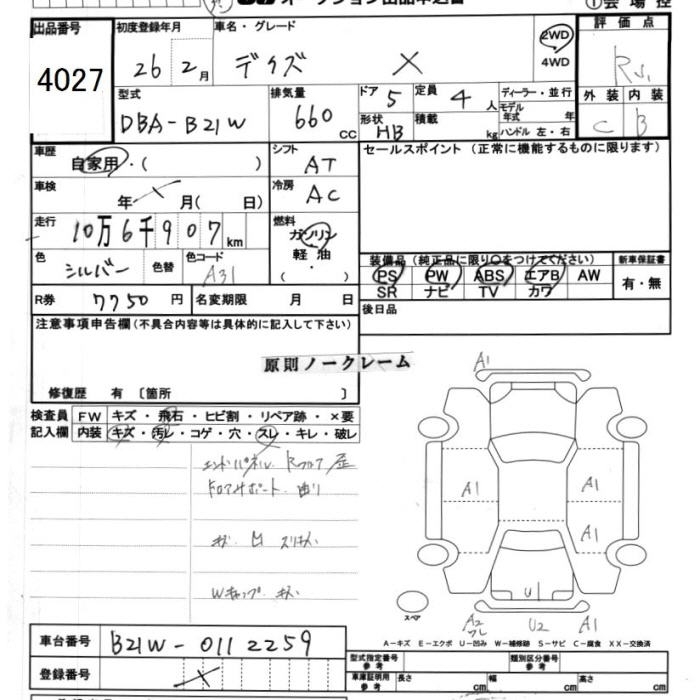 出品番号 初度登録年月 車名・グレード 評価点
4027 26 2月 デイズ X 2WD 4WD
型式 排気量 ドア 5 定員 4人 ディーラー・並行 外装 内装
DBA-B21W 660cc 形状 HB 積載 kg モデル年式 年 ハンドル 左・右 C B
車歴 自家用・( ) シフト AT セールスポイント (正常に機能するものに限ります)
車検 年 月( 日) 冷房 AC
走行 10万6千907km 燃料 ガソリン 軽油 ( ・ )
色 シルバー 色替 色コード A31 装備品(純正品に限り○をつけてください) 新車保証書
PS PW ABS エアB AW 有・無
SR ナビ TV カワ
R券 7750円 名変期限 月 日 後日品
注意事項申告欄(不具合内容等は具体的に記入して下さい)
原則ノークレーム
修復歴 有〔箇所 〕
検査員 FW キズ・飛石・ヒビ割・リペア跡・×要
記入欄 内装 キズ・汚レ・コゲ・穴・スレ・キレ・破レ
A1
A1 A1
A1
U
スペア A2 U2 A1
A-キズ E-エクボ U-凹み W-補修跡 S-サビ C-腐食 XX-交換済
車台番号 B21W-0112259
登録番号
型式指定番号 参考 類別区分番号 参考
車庫証明用 参考 長さ cm 幅 cm 高さ cm